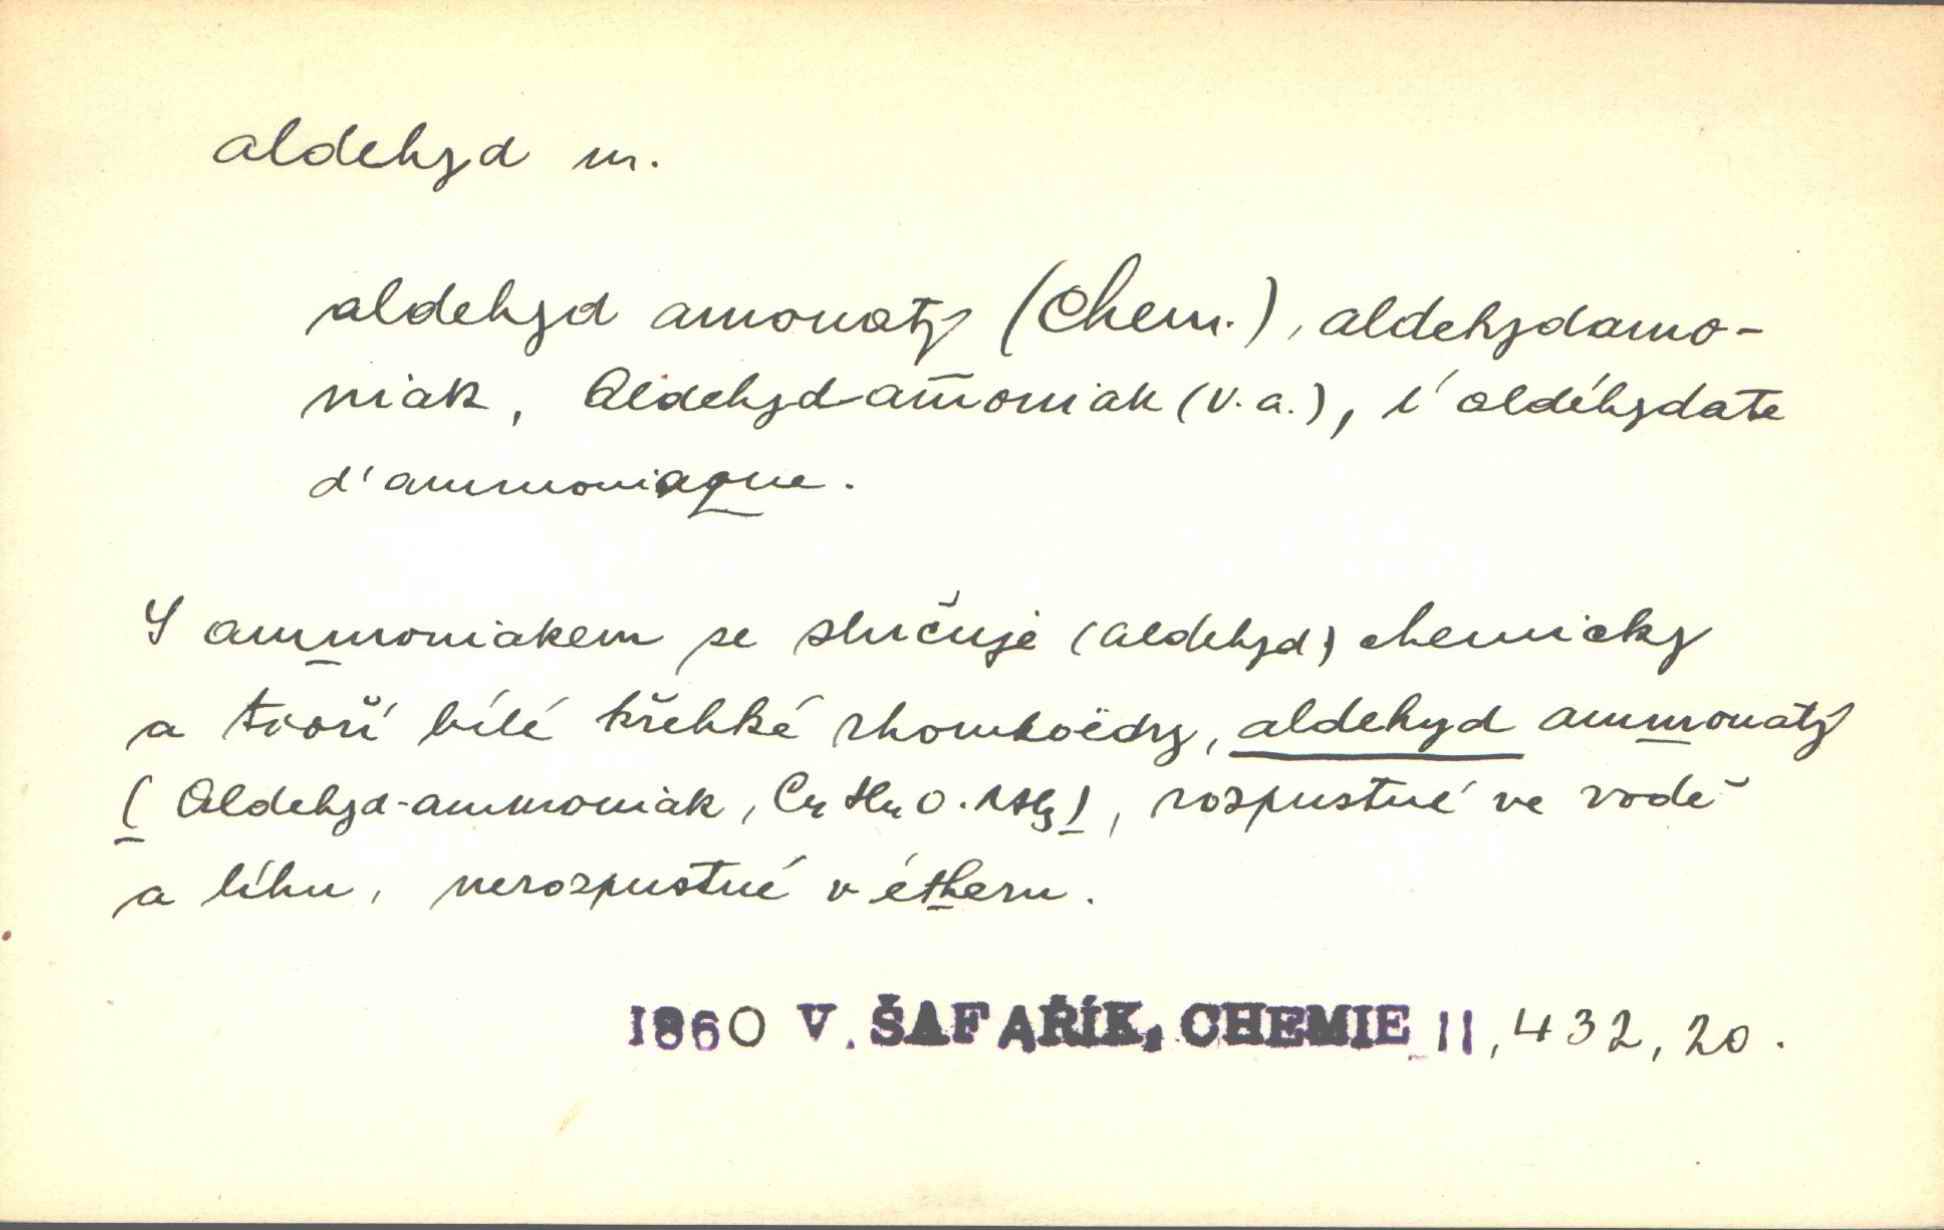 aldehyd m.
aldehyd amonatý (Chem.), aldehydamo-
niak, Aldehyd-am̄oniak (V. a.), l'aldéhydate
d'ammoniaque.
S ammoniakem se slučuje (aldehyd) chemicky
a tvoří bílé křehké rhomboëdry, aldehyd ammonatý
(Aldehyd-ammoniak, C₄H₄O.NH₃), rozpustné ve vodě
a líhu, nerozpustné v étheru.
1860 V. ŠAFAŘÍK, CHEMIE II, 432, 20.